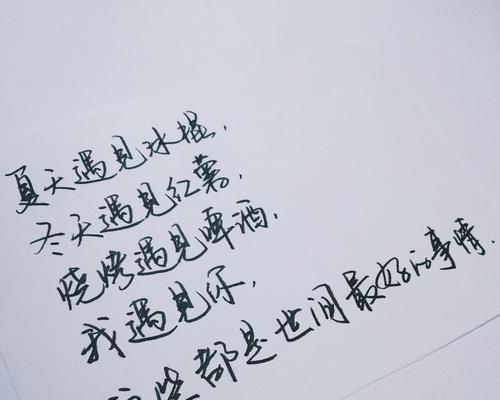 夏天遇见冰棍，
冬天遇见红薯，
烧烤遇见啤酒，
我遇见你，
这些都是世间最好的事情．